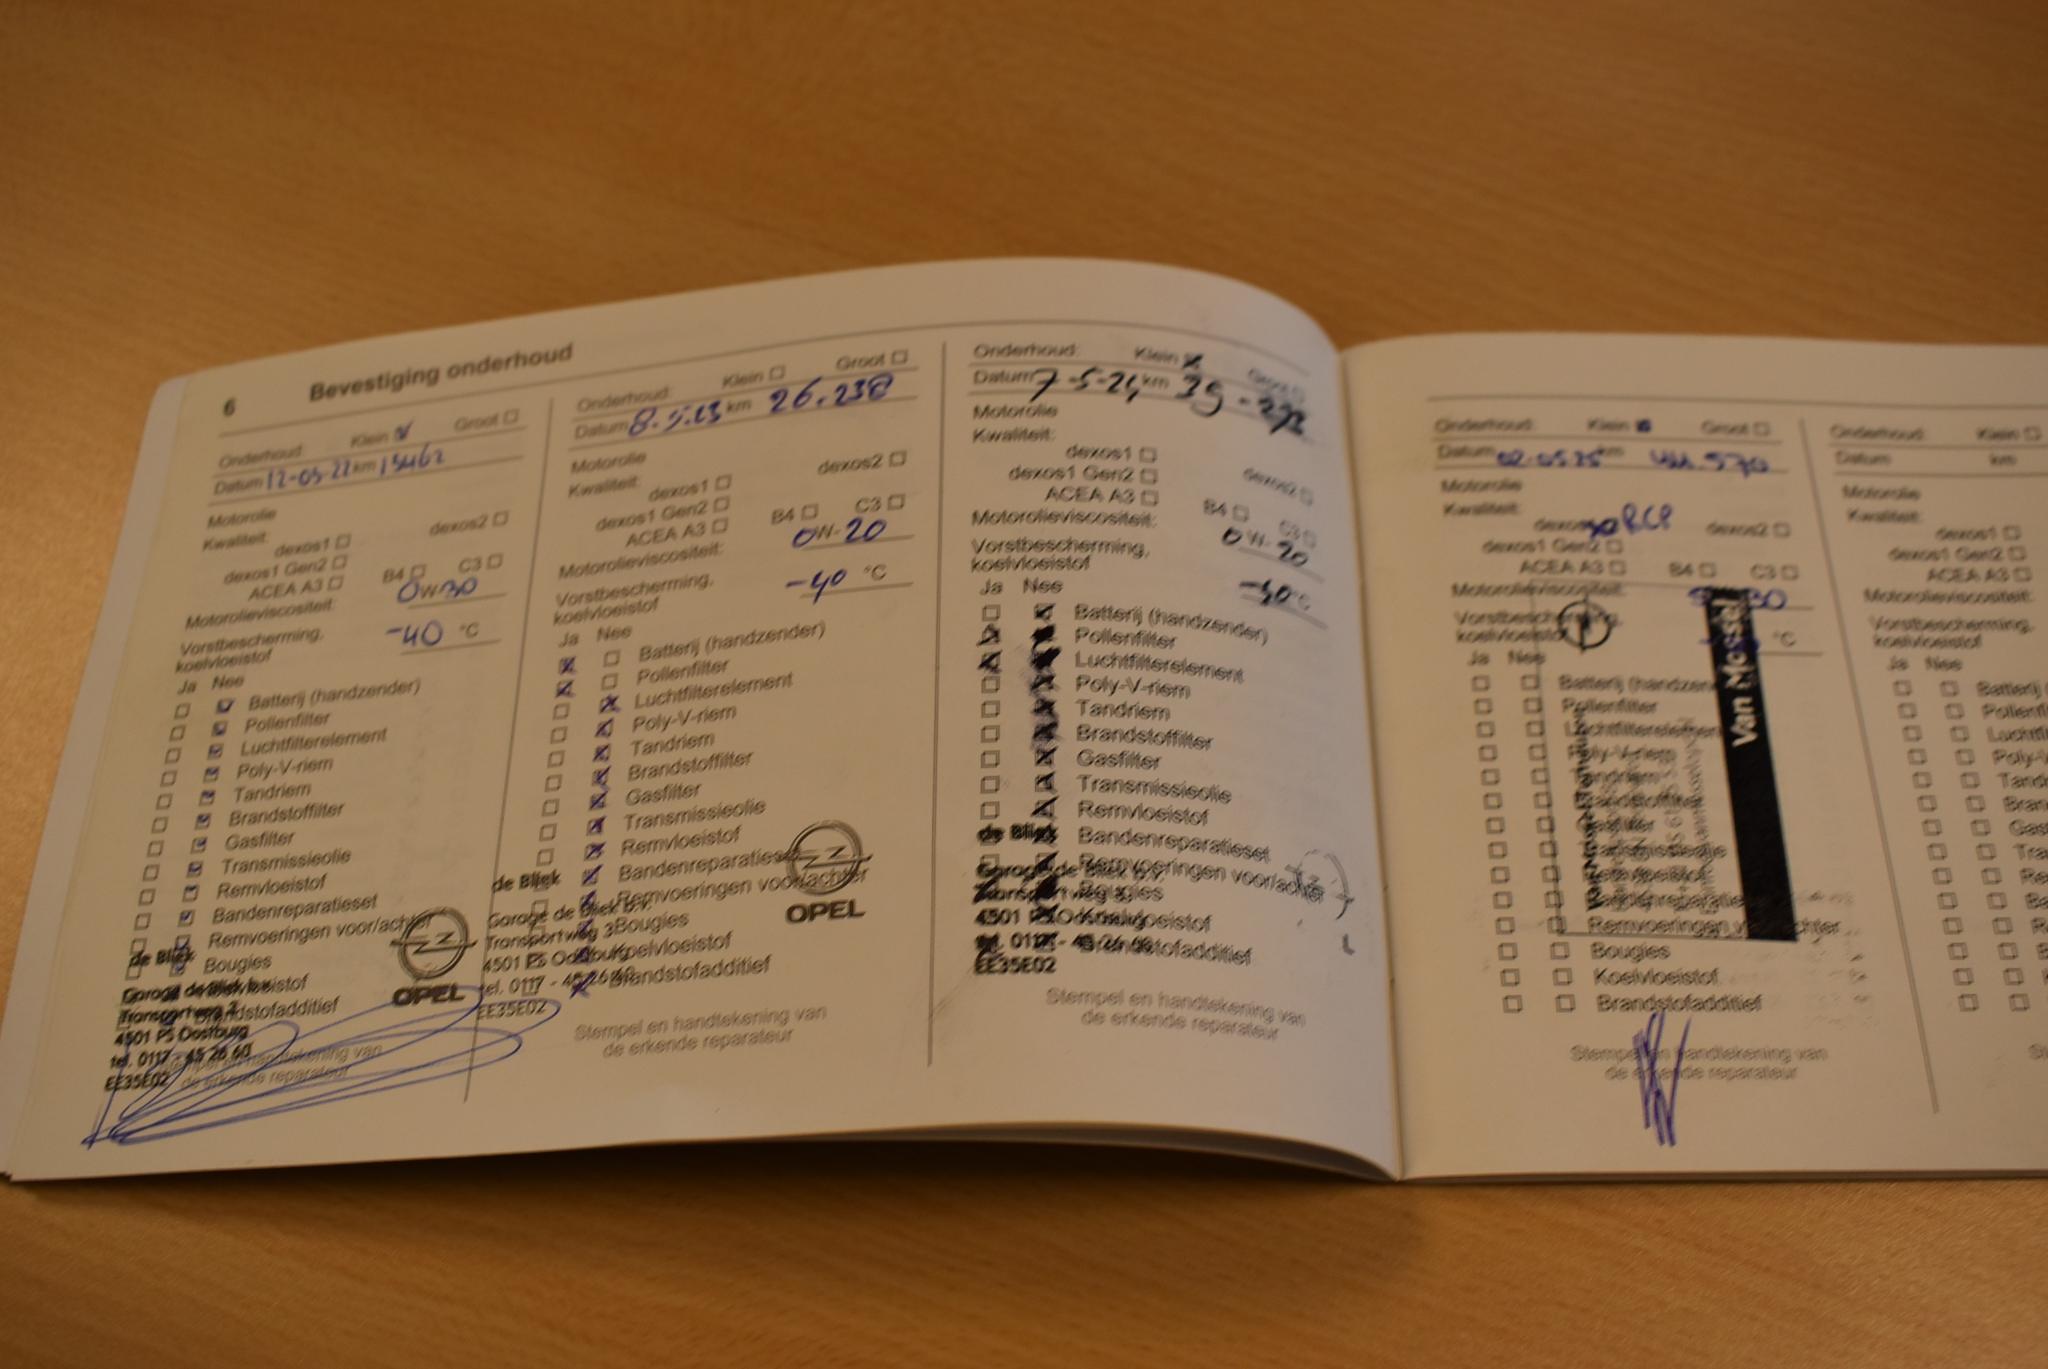 6 Bevestiging onderhoud
Onderhoud: Klein Groot
Datum 12-05-22 km 13462
Motorolie
Kwaliteit:
dexos1 dexos2
dexos1 Gen2
ACEA A3 B4 C3
Motorolieviscositeit: 0W-30
Vorstbescherming,
koelvloeistof -40 °C
Ja Nee
Batterij (handzender)
Pollenfilter
Luchtfilterelement
Poly-V-riem
Tandriem
Brandstoffilter
Gasfilter
Transmissieolie
Remvloeistof
Bandenreparatieset
Remvoeringen voor/achter
Bougies
Koelvloeistof
Brandstofadditief
de Bliek
Garage de Bliek b.v.
Transportweg 3
4501 PS Oostburg
tel. 0117 - 45 26 60
EE35E02
OPEL
Stempel en handtekening van
de erkende reparateur
Onderhoud: Klein Groot
Datum 8.5.23 km 26.238
Motorolie
Kwaliteit:
dexos1 dexos2
dexos1 Gen2
ACEA A3 B4 C3
Motorolieviscositeit: 0W-20
Vorstbescherming,
koelvloeistof -40 °C
Ja Nee
Batterij (handzender)
Pollenfilter
Luchtfilterelement
Poly-V-riem
Tandriem
Brandstoffilter
Gasfilter
Transmissieolie
Remvloeistof
Bandenreparatieset
Remvoeringen voor/achter
Bougies
Koelvloeistof
Brandstofadditief
de Bliek
Garage de Bliek b.v.
Transportweg 3
4501 PS Oostburg
tel. 0117 - 45 26 60
EE35E02
OPEL
Stempel en handtekening van
de erkende reparateur
Onderhoud: Klein Groot
Datum 7-5-24 km
Motorolie
Kwaliteit:
dexos1
dexos1 Gen2 dexos2
ACEA A3 B4 C3
Motorolieviscositeit: 0W-20
Vorstbescherming,
koelvloeistof °C
Ja Nee
Batterij (handzender)
Pollenfilter
Luchtfilterelement
Poly-V-riem
Tandriem
Brandstoffilter
Gasfilter
Transmissieolie
Remvloeistof
Bandenreparatieset
Remvoeringen voor/achter
Bougies
Koelvloeistof
Brandstofadditief
de Bliek
Garage de Bliek b.v.
Transportweg 3
4501 PS Oostburg
tel. 0117 - 45 26 60
EE35E02
Stempel en handtekening van
de erkende reparateur
Onderhoud: Klein Groot
Datum 02-05-25 km 44.570
Motorolie
Kwaliteit:
dexos2
dexos1 Gen2
ACEA A3 B4 C3
Motorolieviscositeit:
Vorstbescherming,
koelvloeistof °C
Ja Nee
Batterij (handzender)
Pollenfilter
Luchtfilterelement
Poly-V-riem
Tandriem
Brandstoffilter
Gasfilter
Transmissieolie
Remvloeistof
Bandenreparatieset
Remvoeringen voor/achter
Bougies
Koelvloeistof
Brandstofadditief
Van Mossel
Stempel en handtekening van
de erkende reparateur
Onderhoud: Klein
Datum km
Motorolie
Kwaliteit:
dexos1
dexos1 Gen2
ACEA A3
Motorolieviscositeit:
Vorstbescherming,
koelvloeistof
Ja Nee